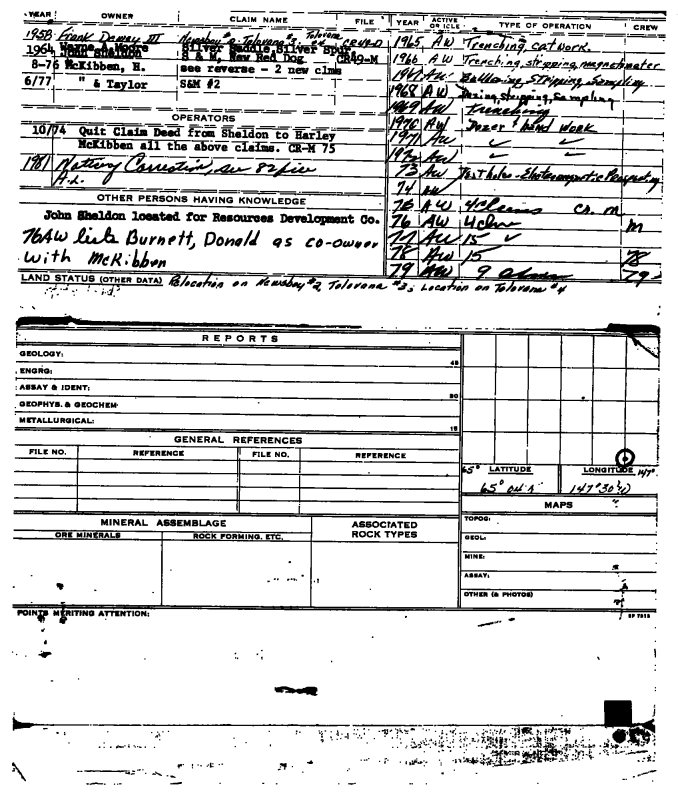 YEAR OWNER CLAIM NAME FILE YEAR ACTIVE OR IDLE TYPE OF OPERATION CREW
1958 Frank Dewey III Newsboy #2, Tolovana #3, Tolovana #4
1964 Wayne A. Moore Silver Saddle, Silver Spur
John Sheldon S & M, New Red Dog CR49-M
8-76 McKibben, H. see reverse - 2 new clms
6/77 " & Taylor S&M #2
1965 AW Trenching, cat work.
1966 AW Trenching, stripping, magnetometer
1967 AW Stripping, Sampling
1968 AW Dozing, stripping, Sampling
1969 AW trenching
1970 AW Dozer & hand work
1971 AW
1972 AW
73 AW Test holes - Prospecting
74 AW
75 AW 4 claims CR. M
76 AW 4 M
77 AW 15
78 AW 15 78
79 AW 9 79
OPERATORS
10/74 Quit Claim Deed from Sheldon to Harley
McKibben all the above claims. CR-M 75
1981 Correction, see 82
A.L.
OTHER PERSONS HAVING KNOWLEDGE
John Sheldon located for Resources Development Co.
76AW lists Burnett, Donald as co-owner
with McKibben
LAND STATUS (OTHER DATA) Relocation on Newsboy #2, Tolovana #3; Location on Tolovana #4
REPORTS
GEOLOGY: 45
ENGRG:
ASSAY & IDENT: 30
GEOPHYS. & GEOCHEM
METALLURGICAL: 15
GENERAL REFERENCES
FILE NO. REFERENCE FILE NO. REFERENCE
65° LATITUDE LONGITUDE 147°
65° 04' N 147° 30' W
MAPS
TOPOG:
GEOL:
MINE:
ASSAY:
OTHER (& PHOTOS)
MINERAL ASSEMBLAGE ASSOCIATED ROCK TYPES
ORE MINERALS ROCK FORMING, ETC.
POINTS MERITING ATTENTION: